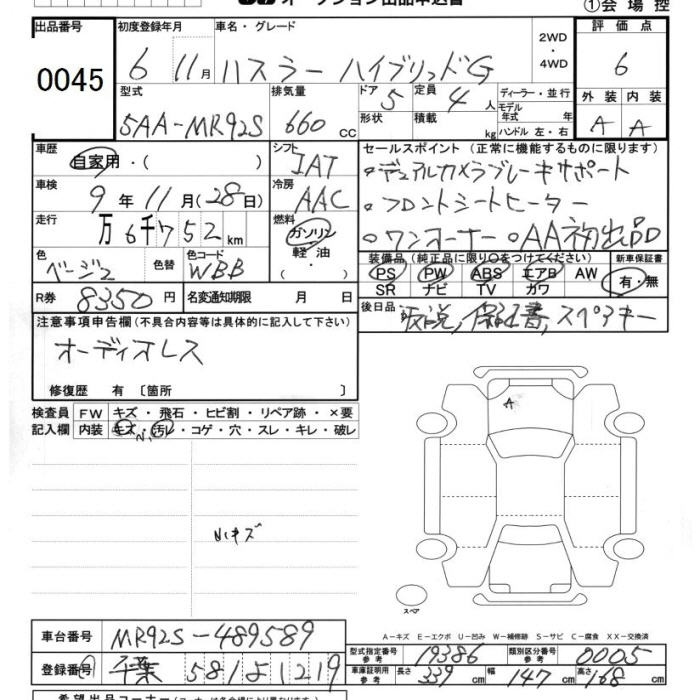 オークション出品申込書
①会場控
出品番号
0045
初度登録年月
6 11月
車名・グレード
ハスラー ハイブリッドG
2WD
・
4WD
評価点
6
型式
5AA-MR92S
排気量
660 cc
ドア
5
定員
4人
形状
積載
kg
ディーラー・並行
モデル年式 年
ハンドル 左・右
外装 内装
A A
車歴
自家用・( )
シフト
IAT
セールスポイント (正常に機能するものに限ります)
・デュアルカメラブレーキサポート
・フロントシートヒーター
・ワンオーナー ・AA初出品
車検
9年11月(28日)
冷房
AAC
走行
万6千752km
燃料
ガソリン
軽油
・
色
ベージュ
色替
色コード
WBB
装備品 (純正品に限り○をつけてください)
PS PW ABS エアB AW
SR ナビ TV カワ
新車保証書
有・無
R券
8350円
名変通知期限 月 日
後日品
取説,保証書,スペアキー
注意事項申告欄(不具合内容等は具体的に記入して下さい)
オーディオレス
修復歴 有 〔箇所 〕
検査員
記入欄
FW キズ・飛石・ヒビ割・リペア跡・×要
内装 キズ・汚レ・コゲ・穴・スレ・キレ・破レ
A
小キズ
スペア
A-キズ E-エクボ U-凹み W-補修跡 S-サビ C-腐食 XX-交換済
車台番号
MR92S-489589
登録番号
千葉 581よ1219
型式指定番号
参考
19386
類別区分番号
参考
0005
車庫証明用
参考
長さ 339cm
幅 147cm
高さ 168cm
希望出品コーナー